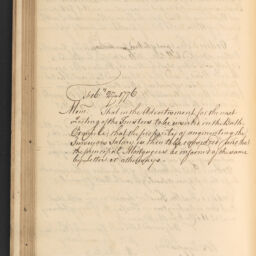 Feb.ry 27th 1776
Mem. That in the Advertisement for the next
Meeting of the Trustees take notice in the Bath
Chronicle that the propriety of augmenting the
Surveyors Salary is then to be considered & also that
the principal Mortgagees be informed of the same
by Letter or otherways.